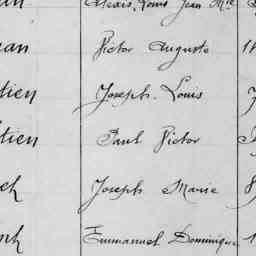 Alexis, Louis Jean Mie
Victor Auguste
tien Joseph Louis
tien Paul Victor
Joseph Marie
Emmanuel Dominique